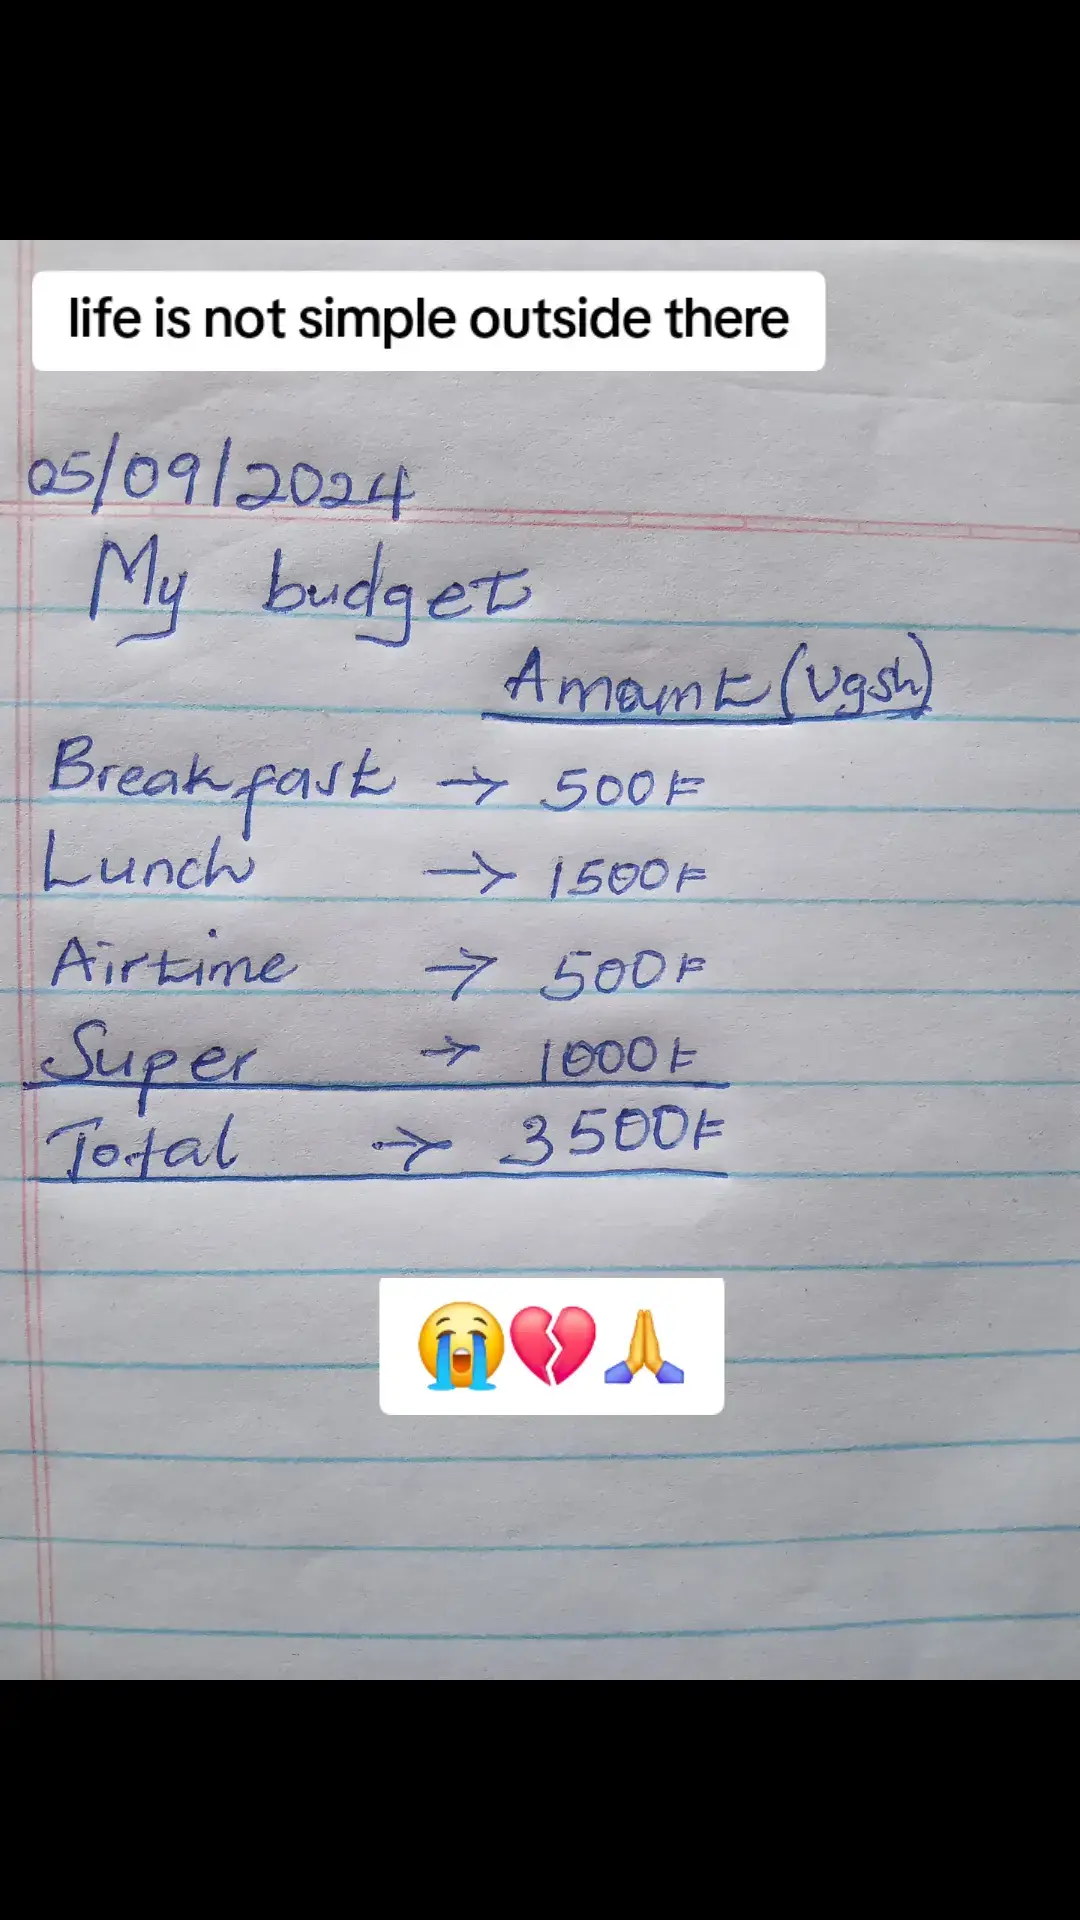 life is not simple outside there
05/09/2024
My budget
Amount (Ugsh)
Breakfast → 500F
Lunch → 1500F
Airtime → 500F
Super → 1000F
Total → 3500F
😭💔🙏